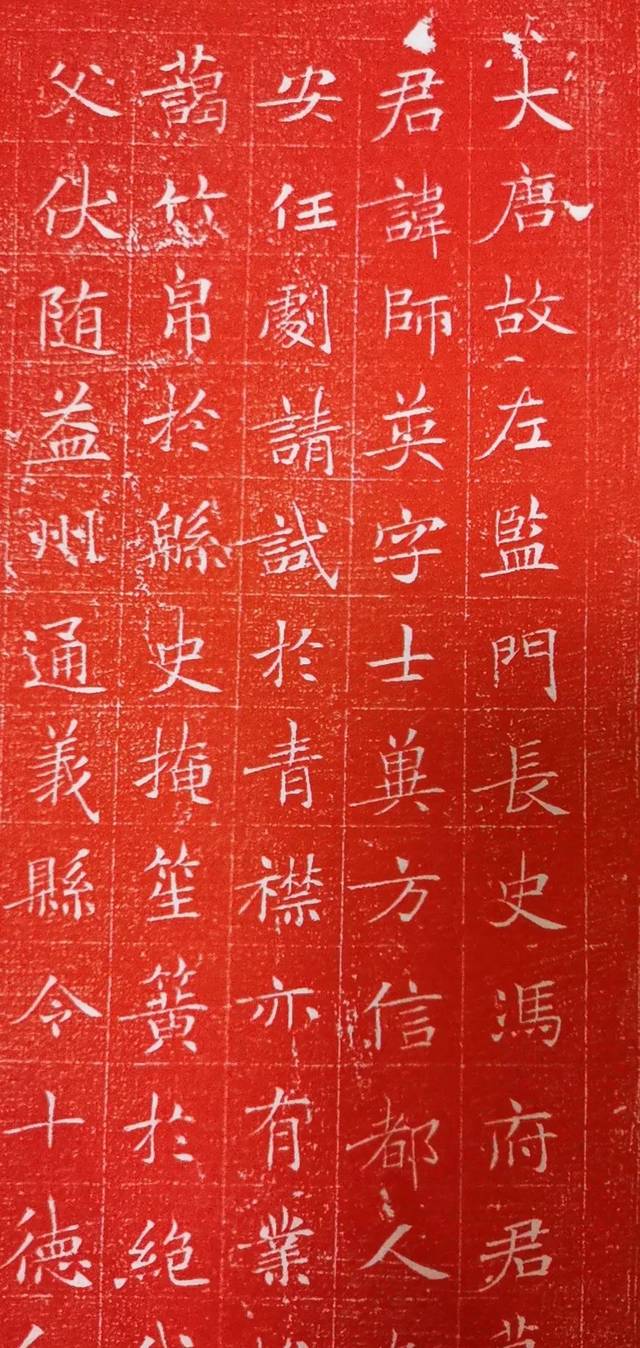 大唐故左監門長史馮府君
君諱師英字士兾方信都人
安任劇請試於青襟亦有業
藹竹帛於緜史掩笙簧於絶
父伏随益州通義縣令十德